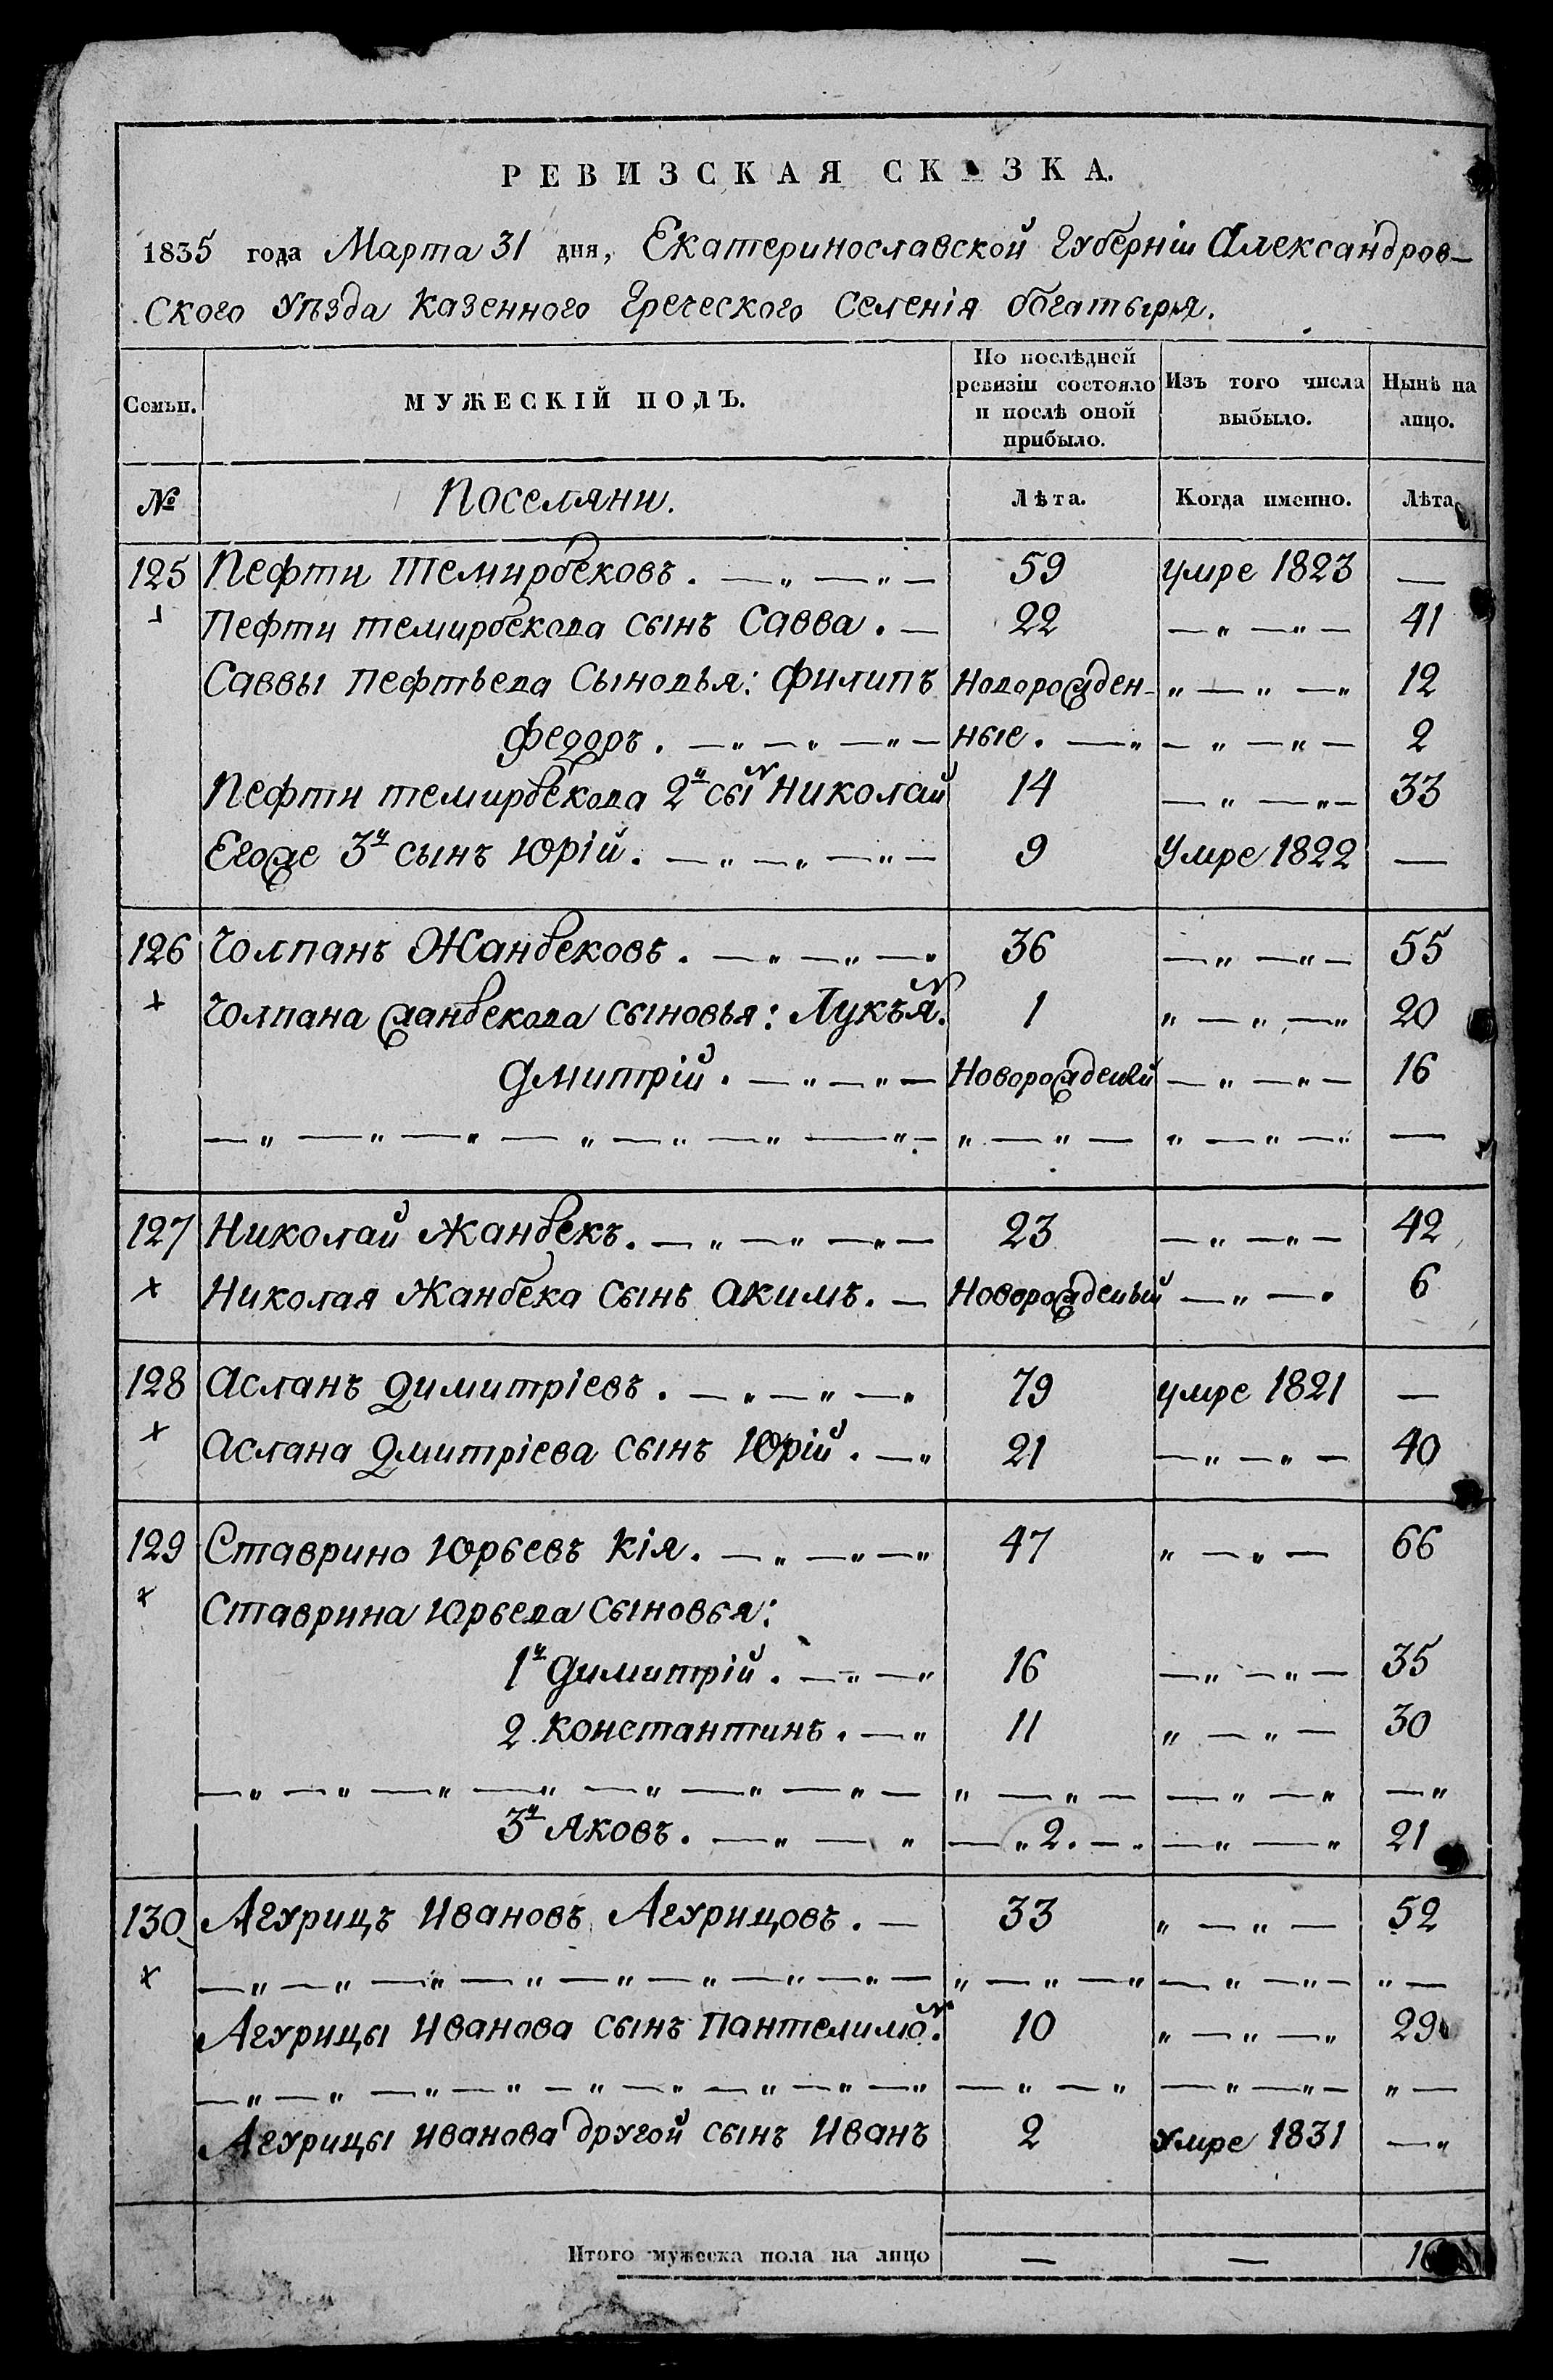 РЕВИЗСКАЯ СКАЗКА.
1835 года Марта 31 дня, Екатеринославской Губерніи Александров-
ского Уѣзда Казенного Греческого Селенія Богатыря.
Семьи. МУЖЕСКІЙ ПОЛЪ. По послѣдней ревизіи состояло и послѣ оной прибыло. Изъ того числа выбыло. Нынѣ на лицо.
№ Поселяни. Лѣта. Когда именно. Лѣта
125 Пефти Темирбековъ. — „ — „ — 59 умре 1823 —
Пефти Темирбекова сынъ Савва. — 22 — „ — „ — 41
Саввы Пефтьева Сыновья: Филипъ Новорожден- „ — „ — „ 12
Федоръ. — „ — „ — „ — ные. — „ — „ — „ — 2
Пефти Темирбекова 2й сын Николай 14 — „ — „ — 33
Егоже 3й сынъ Юрій. — „ — „ — „ — 9 Умре 1822 —
126 Чолпанъ Жанбековъ. — „ — „ — „ 36 — „ — „ — 55
х Чолпана Жанбекова сыновья: Лукъян. 1 „ — „ — „ 20
Дмитрій. — „ — „ — Новорожденый — „ — „ — 16
— „ — „ — „ — „ — „ — „ — „ — „ — „ — „ — „ — „ — „ —
127 Николай Жанбекъ. — „ — „ — „ — 23 — „ — „ — 42
х Николая Жанбека Сынъ Акимъ. — Новорожденый — „ — „ 6
128 Асланъ Димитріевъ. — „ — „ — „ 79 умре 1821 —
х Аслана Дмитріева Сынъ Юрій. — „ 21 — „ — „ — 40
129 Ставрино Юрьевъ Кія. — „ — „ — „ 47 „ — „ — 66
х Ставрина Юрьева Сыновья:
1й Димитрій. — „ — „ 16 — „ — „ — 35
2. Константинъ. — „ 11 „ — „ — 30
— „ — „ — „ — „ — „ — „ — „ — „ — „ — — „ — „ — „
3й Яковъ. — „ — „ — „ 2. — „ — „ — „ 21
130 Агурицъ Ивановъ Агурицовъ. — 33 „ — „ — 52
х — „ — „ — „ — „ — „ — „ — „ — „ — „ — „ — „ — „ — „ — „ —
Агурицы Иванова сынъ Пантелимон. 10 „ — „ — „ 29
— „ — „ — „ — „ — „ — „ — „ — „ — „ — „ — „ — „ — „ — „ —
Агурицы Иванова другой сынъ Иванъ 2 Умре 1831 — „
Итого мужеска пола на лицо — —